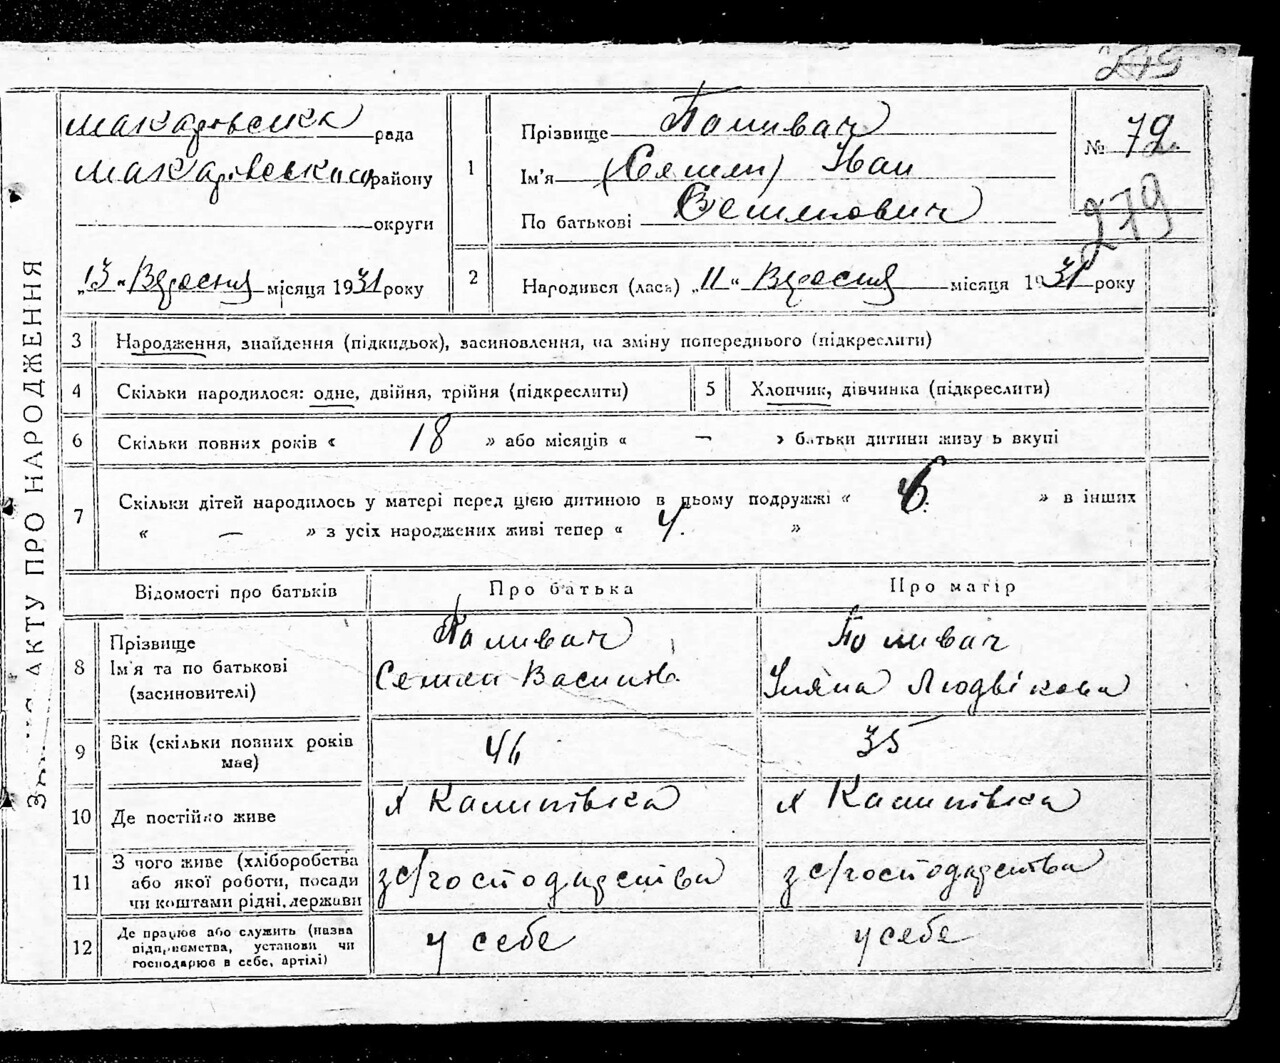 279
АКТУ ПРО НАРОДЖЕННЯ
Макарівська рада
Макарівського району
округи
„13" Вересня місяця 1931 року
1
Прізвище Поливач
Ім'я (Семен) Іван
По батькові Семенович
№ 72.
279
2
Народився (лась) „11" Вересня місяця 1931 року
3
Народження, знайдення (підкидьок), засиновлення, на зміну попереднього (підкреслити)
4
Скільки народилося: одне, двійня, трійня (підкреслити)
5
Хлопчик, дівчинка (підкреслити)
6
Скільки повних років « 18 » або місяців « — » батьки дитини живу ь вкупі
7
Скільки дітей народилось у матері перед цією дитиною в цьому подружжі « 6. » в інших
« — » з усіх народжених живі тепер « 4. »
Відомості про батьків
Про батька
Про матір
8
Прізвище
Ім'я та по батькові
(засиновителі)
Поливач
Семен Василів
Поливач
Уляна Людвікова
9
Вік (скільки повних років
має)
46
35
10
Де постійно живе
х Калинівка
х Калинівка
11
З чого живе (хліборобства
або якої роботи, посади
чи коштами рідні, держави
з с/господарства
з с/господарства
12
Де працює або служить (назва
підприємства, установи чи
господарює в себе, артілі)
у себе
у себе